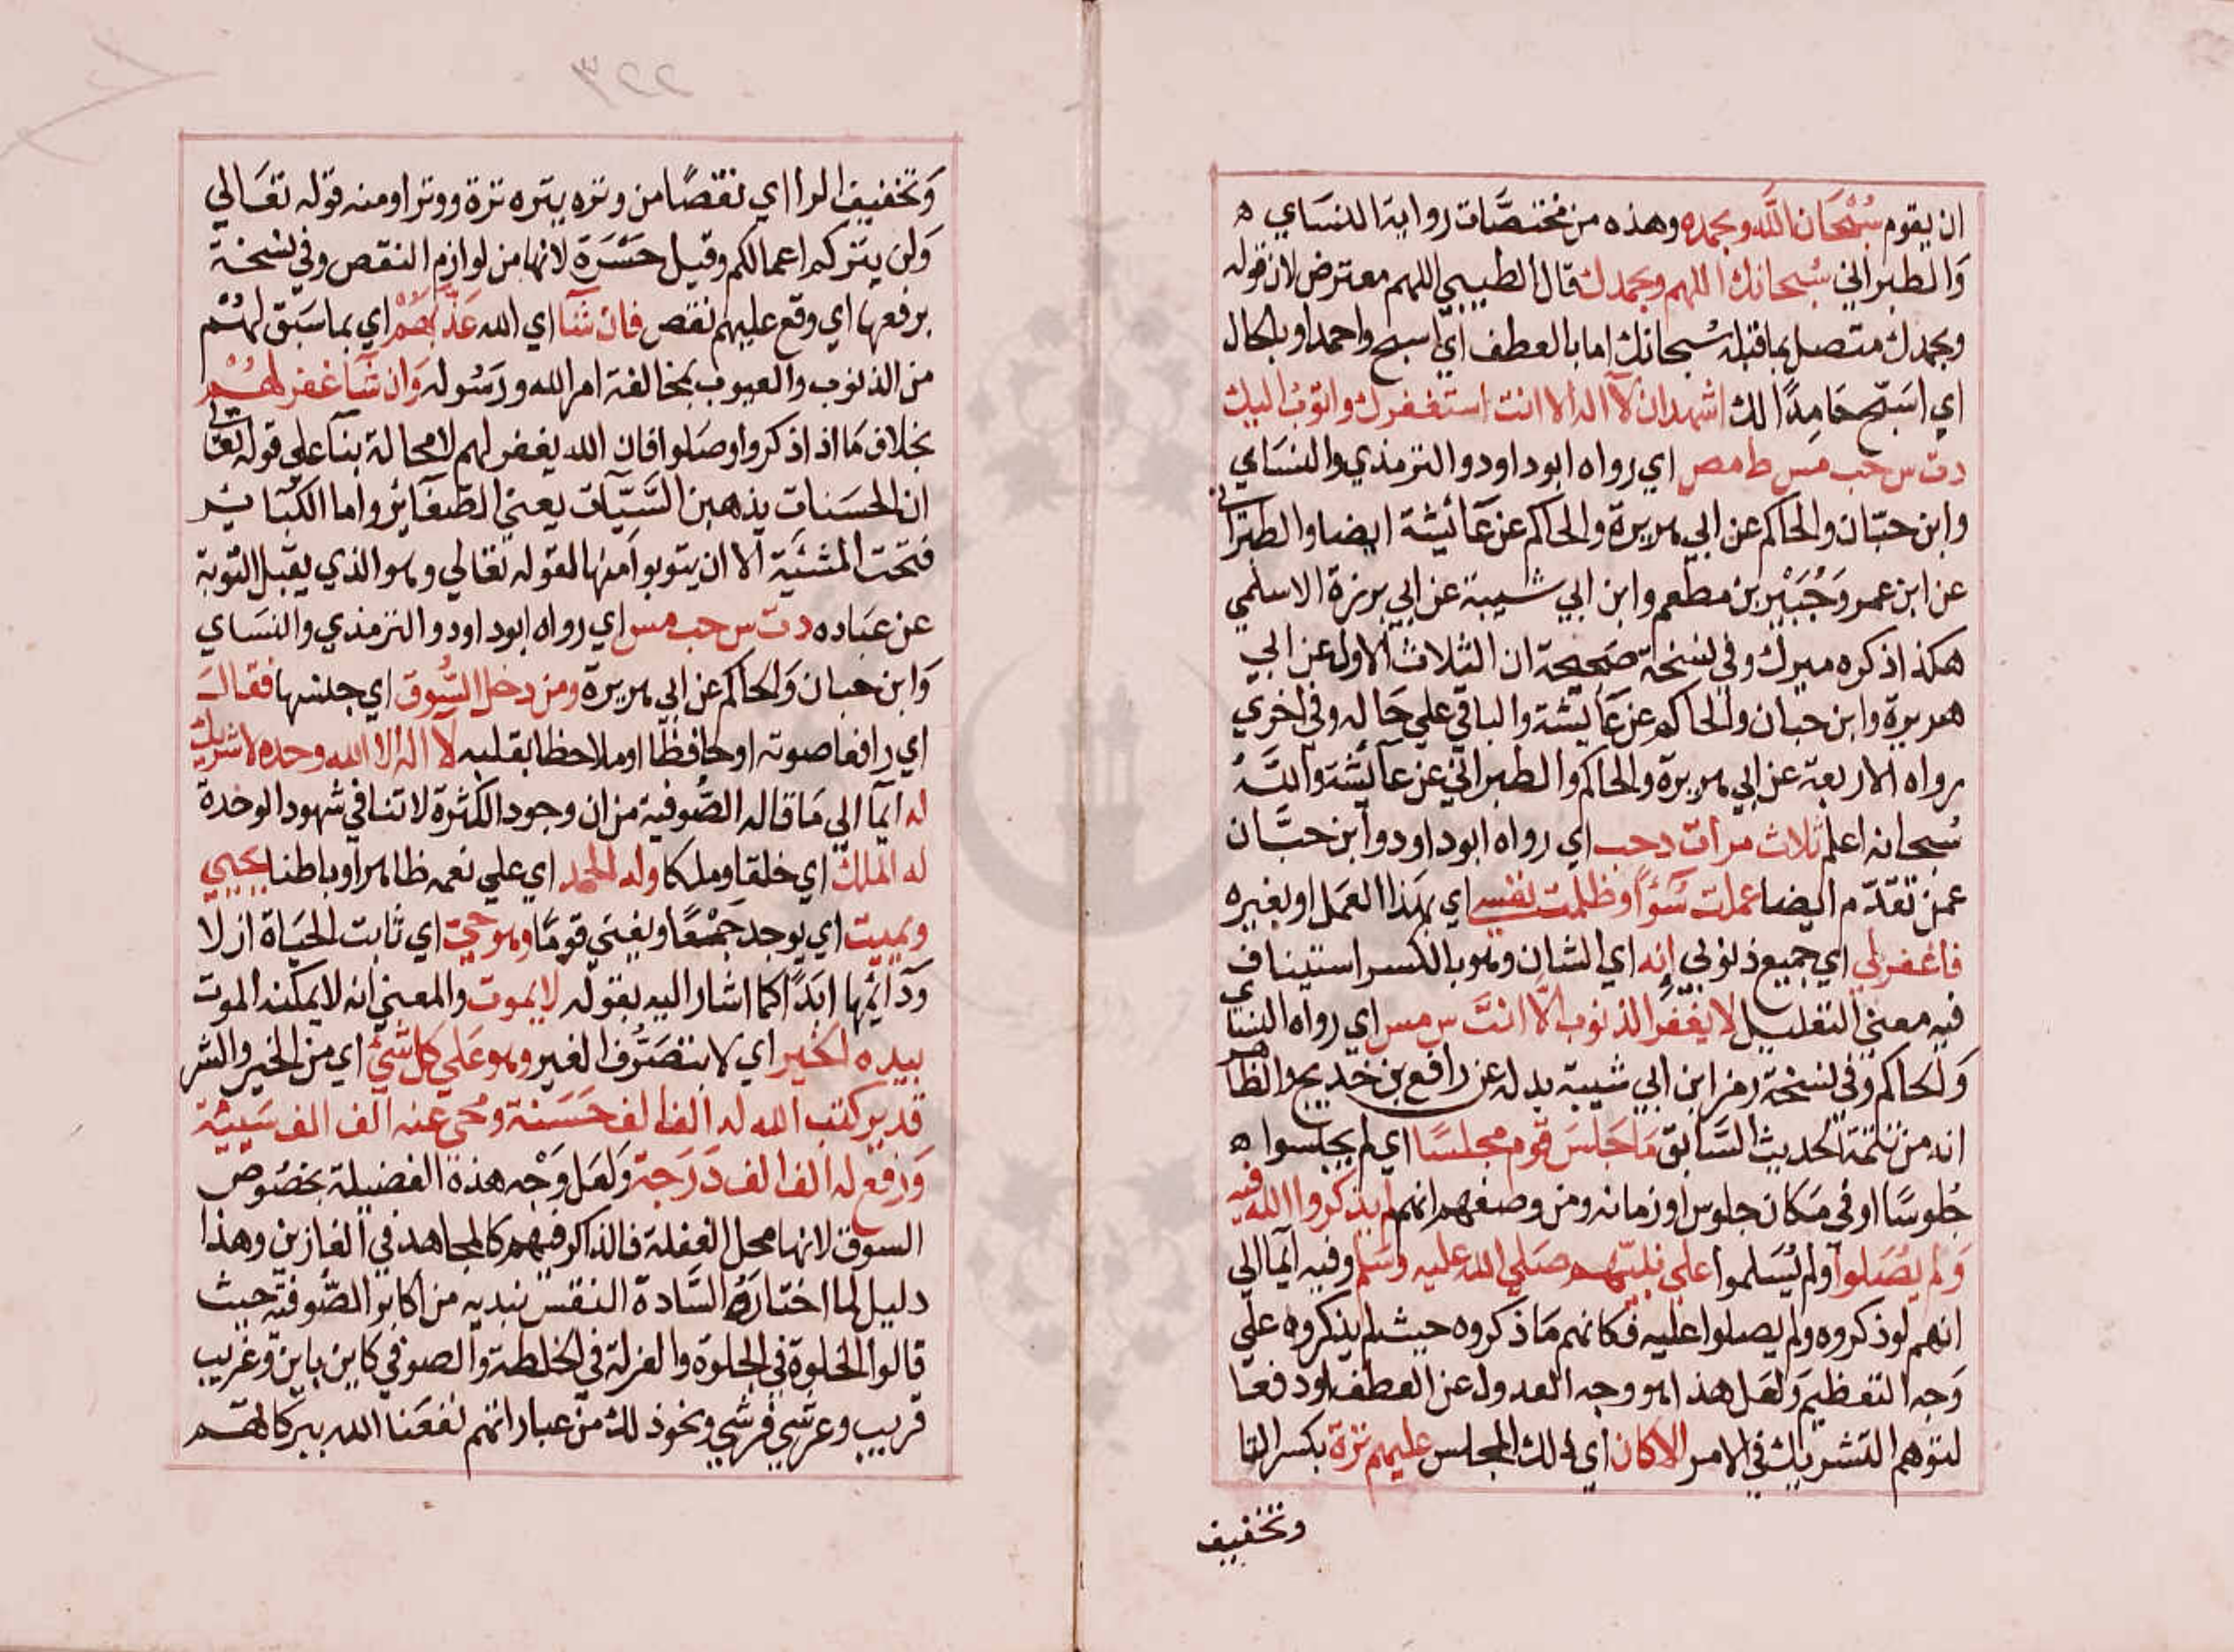 ان يقوم سُبْحَان اللّه وبحمده وهذه من مختصَّات رواية النسَاي ه
وَالطبراني سُبحانك اللهم وبحمدك قال الطيبي اللهم معترض لان قوله
وبحمدك متصل بما قبله سُبحانك اما بالعطف اي اسبح واحمد او بالحال
اي اسَبّح حَامِدًا لك اشهد ان لآ اله الا انت استغفرك واتوب اليك
دت س حب مس ط مص اي رواه ابوداود والترمذي والنسَاي
وابن حبّان والحاكم عن ابي هريرة والحاكم عن عَائيشة ايضا والطبراني
عن ابن عمر وَجُبَيْر بن مطعم وابن ابي شيبة عن ابي برزة الاسلمي
هكذا ذكره ميرك وفي نسخة صَحيحة ان الثلاث الاول عن ابي
هريرة وابن حبان والحاكم عن عَايشة والباقي علي حَاله وفي اخري
رواه الاربعة عن ابي هريرة والحاكم والطبراني عن عآئشة واللّه
سُبحانه اعلم ثلاث مرات د حب اي رواه ابوداود وابن حبَّان
عمن تقدّم ايضا عملت سُوًا وظلمت نفسي اي بهذا العمل او بغيره
فاغفرلي اي جميع ذنوبي إنه اي الشان وهو بالكسر استيناف
فيه معني التعليل لا يغفر الذنوب الّا انتَ س مس اي رواه النسَاي
وَالحاكم وفي نسخة رمز ابن ابي شيبة بدله عن رافع بن خديج والظاهر
انه من تتمة الحديث السَابق مَا جَلسَ قوم مجلسًا اي لم يجلسوا ه
جُلوسًا او في مَكان جلوس او زمانه ومن وصفهم انهم لم يذكروا الله فيه
وَلم يُصَلوا ولم يُسَلموا علي نبيّهم صَلي الله عليه وسَلم وفيه ايمآ الي
انهم لو ذكروه ولم يصلوا عليه فكانهم مَا ذكروه حيث لم يذكروه علي
وَجه التعظيم وَلعَل هذا هو وجه العدول عن العطف او دفعا
لتوهم التشريك في الامر الا كان اي ذلك المجلس عليهم ترة بكسر التا
وتخفيف
وَتخفيف الرا اي نقصًا من وتره يتره ترة ووترا ومنه قوله تعَالي
وَلن يتركم اعمالكم وقيل حَسْرَة لانها من لوازم النقص وفي نسخة
برفعها اي وقع عليهم نقص فان شآ اي الله عَذّبَهُمْ اي بما سَبَق لهُمْ
من الذنوب والعيوب بمخالفة امر الله ورَسُوله وَان شآ غفر لهُمْ
بخلاف مَا اذا ذكروا وصَلوا فان الله يغفر لهم لا محالة بنآ علي قوله تعَالي
ان الحسَنات يذهبن السَّيّآت يعني الصّغآئر واما الكبآير
فتحت المشئية الا ان يتوبوا منها لقوله تعالي وهو الذي يقبل التوبة
عن عبَاده دت س حب مس اي رواه ابوداود والترمذي والنسَاي
وَابن حبان وَالحاكم عن ابي هريرة ومن دخل السُّوق اي جلسها فقالَ
اي رافعا صوته او حَافظا او ملاحظا بقلبه لا اله الا الله وحده لا شريك
له ايمآ الي مَا قاله الصُّوفية من ان وجود الكثرة لا تنافي شهود الوحدة
له الملك اي خلقا وملكا وله الحمد اي علي نعمه ظاهرا وباطنا يحيي
ويميت اي يوجد جَمْعًا ويفني قومًا وهو حيّ اي ثابت الحَيَاة ازلا
ودَآئمها ابَدًا كما اشار اليه بقوله لا يموت والمعني انه لا يمكنه الموت
بيده الخَير اي لا بتصَرُّف الغير وهو عَلي كل شئ اي من الخير والشر
قدير كتب الله له الف الف حَسَنة ومحي عنه الف الف سَيئة
وَرَفع له الف الف دَرَجة وَلعَل وَجْه هذه الفضيلة بخصُوص
السوق لانها محل الغفلة فالذاكر فيهم كالمجاهد في الغازين وهذا
دليل لما اختارهُ السَّادة النقشبندية من اكابر الصُّوفية حيث
قالوا الخلوة في الجلوة والعزلة في الخلطة والصوفي كاين باين وغريب
قريب وعرشي فرشي ونحو ذلك من عباراتهم نفعَنا الله ببركاتهم